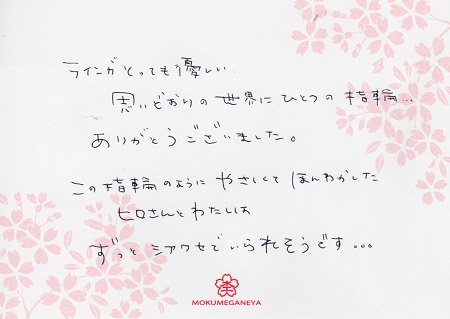 ラインがとっても優しい
思いどおりの世界にひとつの指輪...
ありがとうございました。
この指輪のように やさしくて ほんわかした
ヒロさんとわたしは
ずっと シアワセでいられそうです...
MOKUMEGANEYA